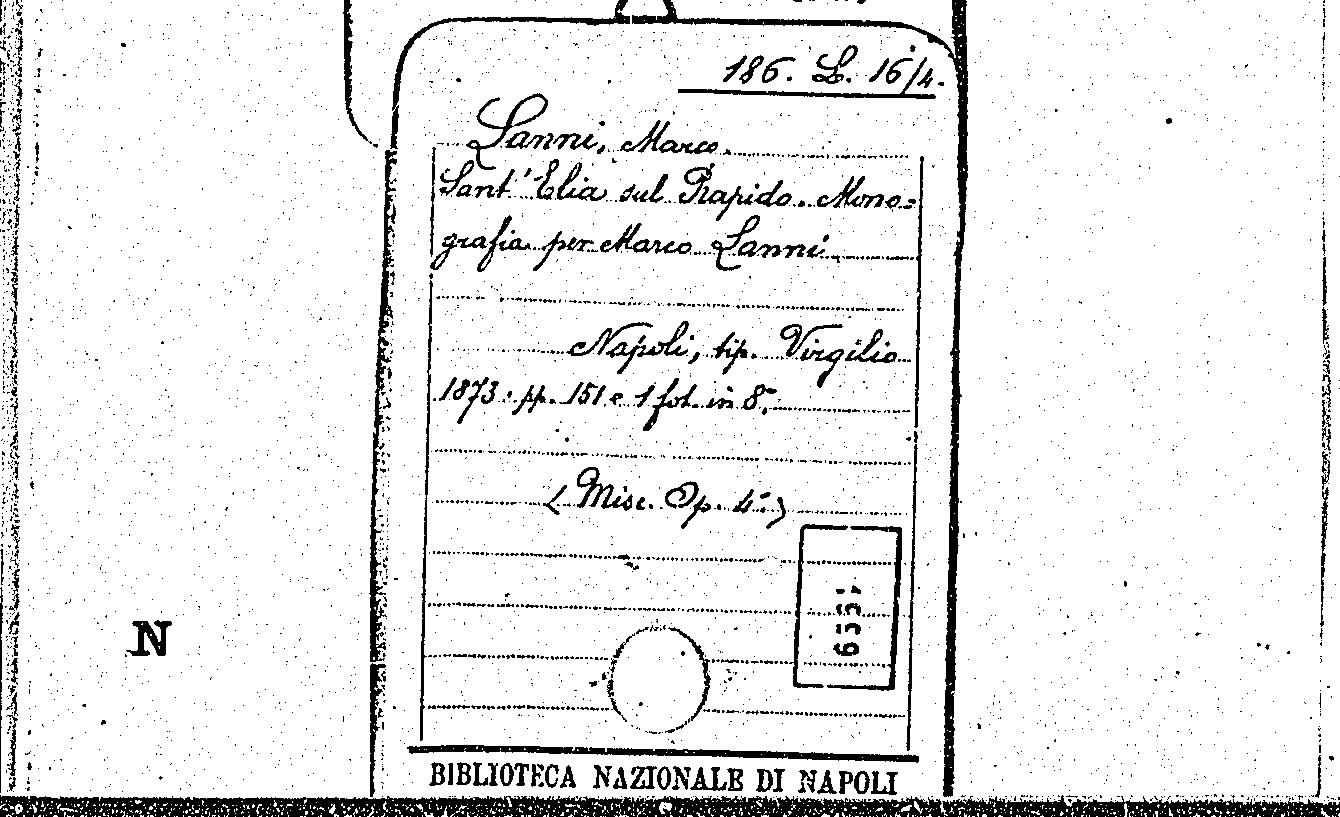 186. L. 16/4.
Lanni, Marco.
Sant' Elia sul Rapido. Mono=
grafia per Marco Lanni
Napoli, tip. Virgilio
1873. pp. 151 e 1 fot. in 8.°
(Misc. Op. 4.°)
N
BIBLIOTECA NAZIONALE DI NAPOLI